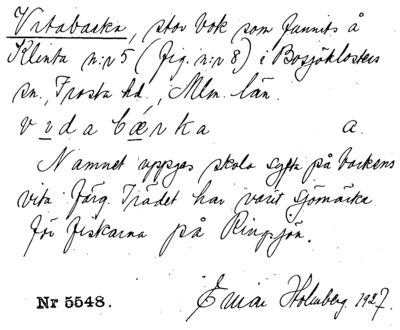 Vitabacka, stor bok som funnits å
Klinta n:r 5 (fig. n:r 8) i Bosjöklosters
sn., Frosta hd., Mlm. län.
vidabærka a.
Namnet uppges skola syfta på barkens
vita färg. Trädet har varit sjömärke
för fiskarna på Ringsjön.
Nr 5548. Holmberg 1927.